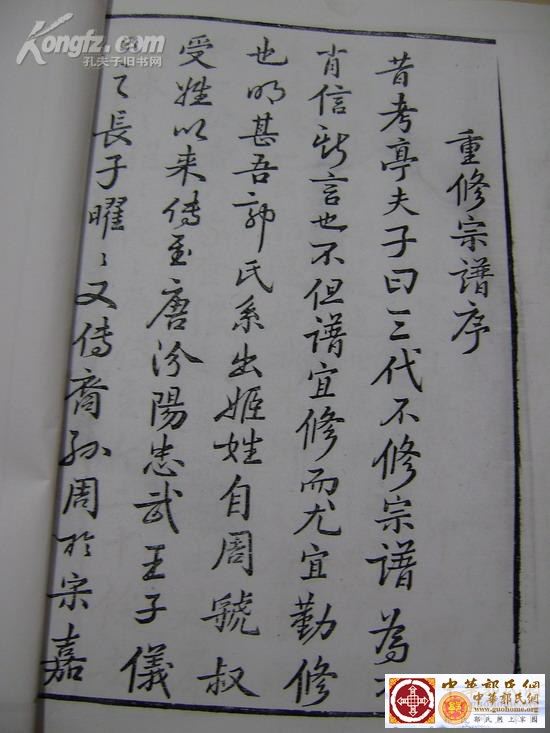 重修宗譜序
昔考亭夫子曰三代不修宗譜為不
肖信斯言也不但譜宜修而尤宜勤修
也明甚吾郭氏系出姬姓自周虢叔
受姓以来傳至唐汾陽忠武王子儀
長子曜〻又傳裔孫周於宋嘉
Kongfz.com
孔夫子旧书网
中華郭氏網
www.guohome.org
郭氏網上家園